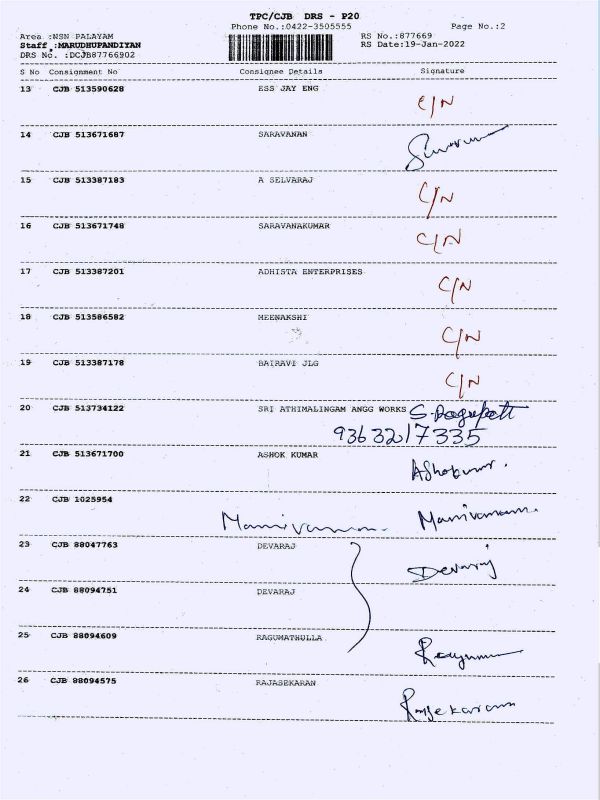 TPC/CJB DRS - P20
Phone No.:0422-3505555 Page No.:2
Area :NSN PALAYAM RS No.:877669
Staff :MARUDHUPANDIYAN RS Date:19-Jan-2022
DRS No. :DCJB87766902
S No Consignment No Consignee Details Signature
13 CJB 513590628 ESS JAY ENG
C/N
14 CJB 513671687 SARAVANAN
15 CJB 513387183 A SELVARAJ
C/N
16 CJB 513671748 SARAVANAKUMAR
C/N
17 CJB 513387201 ADHISTA ENTERPRISES
C/N
18 CJB 513586582 MEENAKSHI
C/N
19 CJB 513387178 BAIRAVI JLG
C/N
20 CJB 513734122 SRI ATHIMALINGAM ANGG WORKS
9363217335
21 CJB 513671700 ASHOK KUMAR
22 CJB 1025954
23 CJB 88047763 DEVARAJ
Devaraj
24 CJB 88094751 DEVARAJ
25 CJB 88094609 RAGUMATHULLA
26 CJB 88094575 RAJASEKARAN